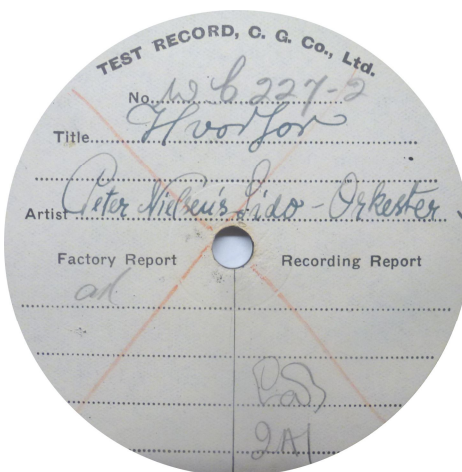 TEST RECORD, C. G. Co., Ltd.
No. WC 227-2
Title Hvorfor
Artist Peter Nielsen's Lido-Orkester
Factory Report
Recording Report